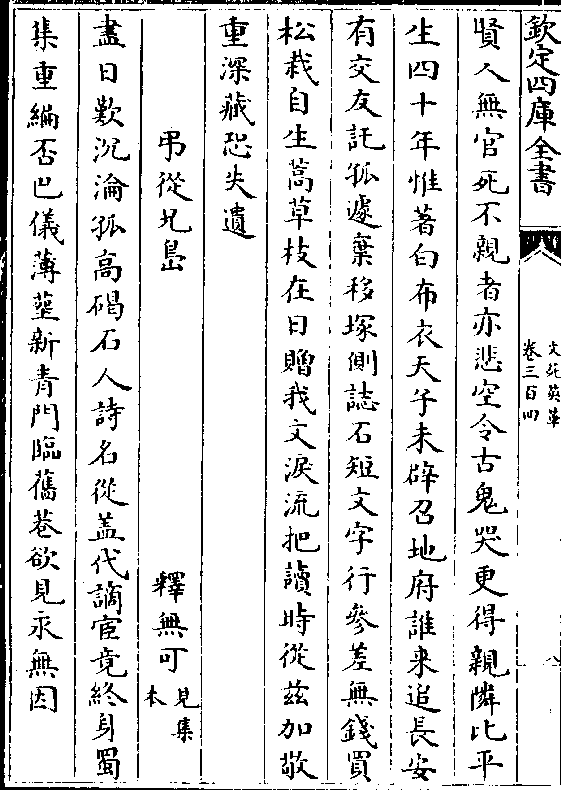 欽定四庫全書
文苑英華
卷三百四
八
賢人無官死不親者亦悲空令古鬼哭更得親隣比平
生四十年惟著白布衣天子未辟召地府誰来追長安
有交友託孤遽棄移塚側誌石短文字行參差無錢買
松栽自生蒿草枝在日贈我文淚流把讀時從兹加敬
重深藏恐失遺
弔從兄島 釋無可 見集本
盡日歎沉淪孤高碣石人詩名從盖代謫宦竟終身蜀
集重編否巴儀薄塟新青門臨舊巷欲見永無因